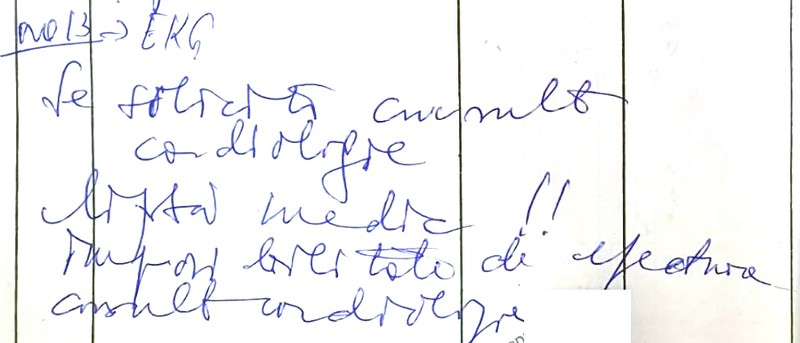 → EKG
Se solicită consult
cardiologie
Lipsă medic !!
Imposibilitate de efectuare
consult cardiologie